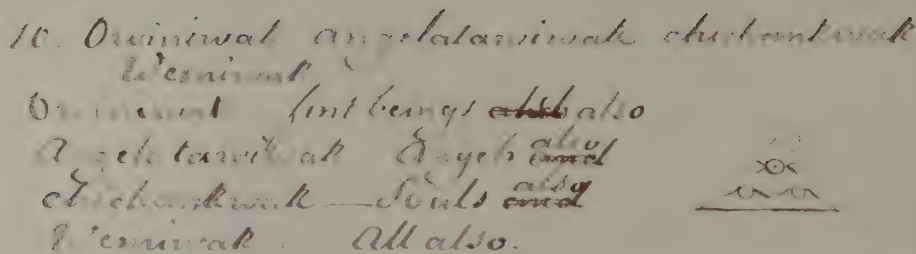 10. Owiniwak angelatawiwak chichankwak
Wemiwak
Owiniwak first beings also also
Angelatawiwak Angels also and
Chichankwak — Souls also and
Wemiwak. All also.